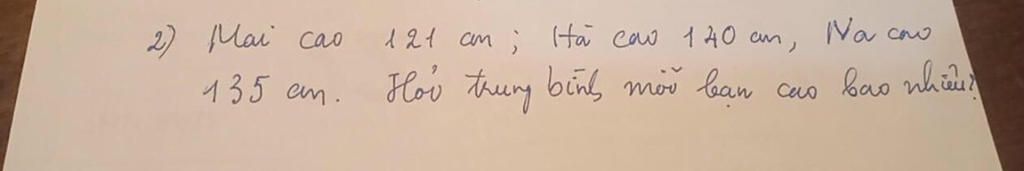 2) Mai cao 121 cm ; Hà cao 140 cm, Na cao
135 cm. Hỏi trung bình mỗi bạn cao bao nhiêu?